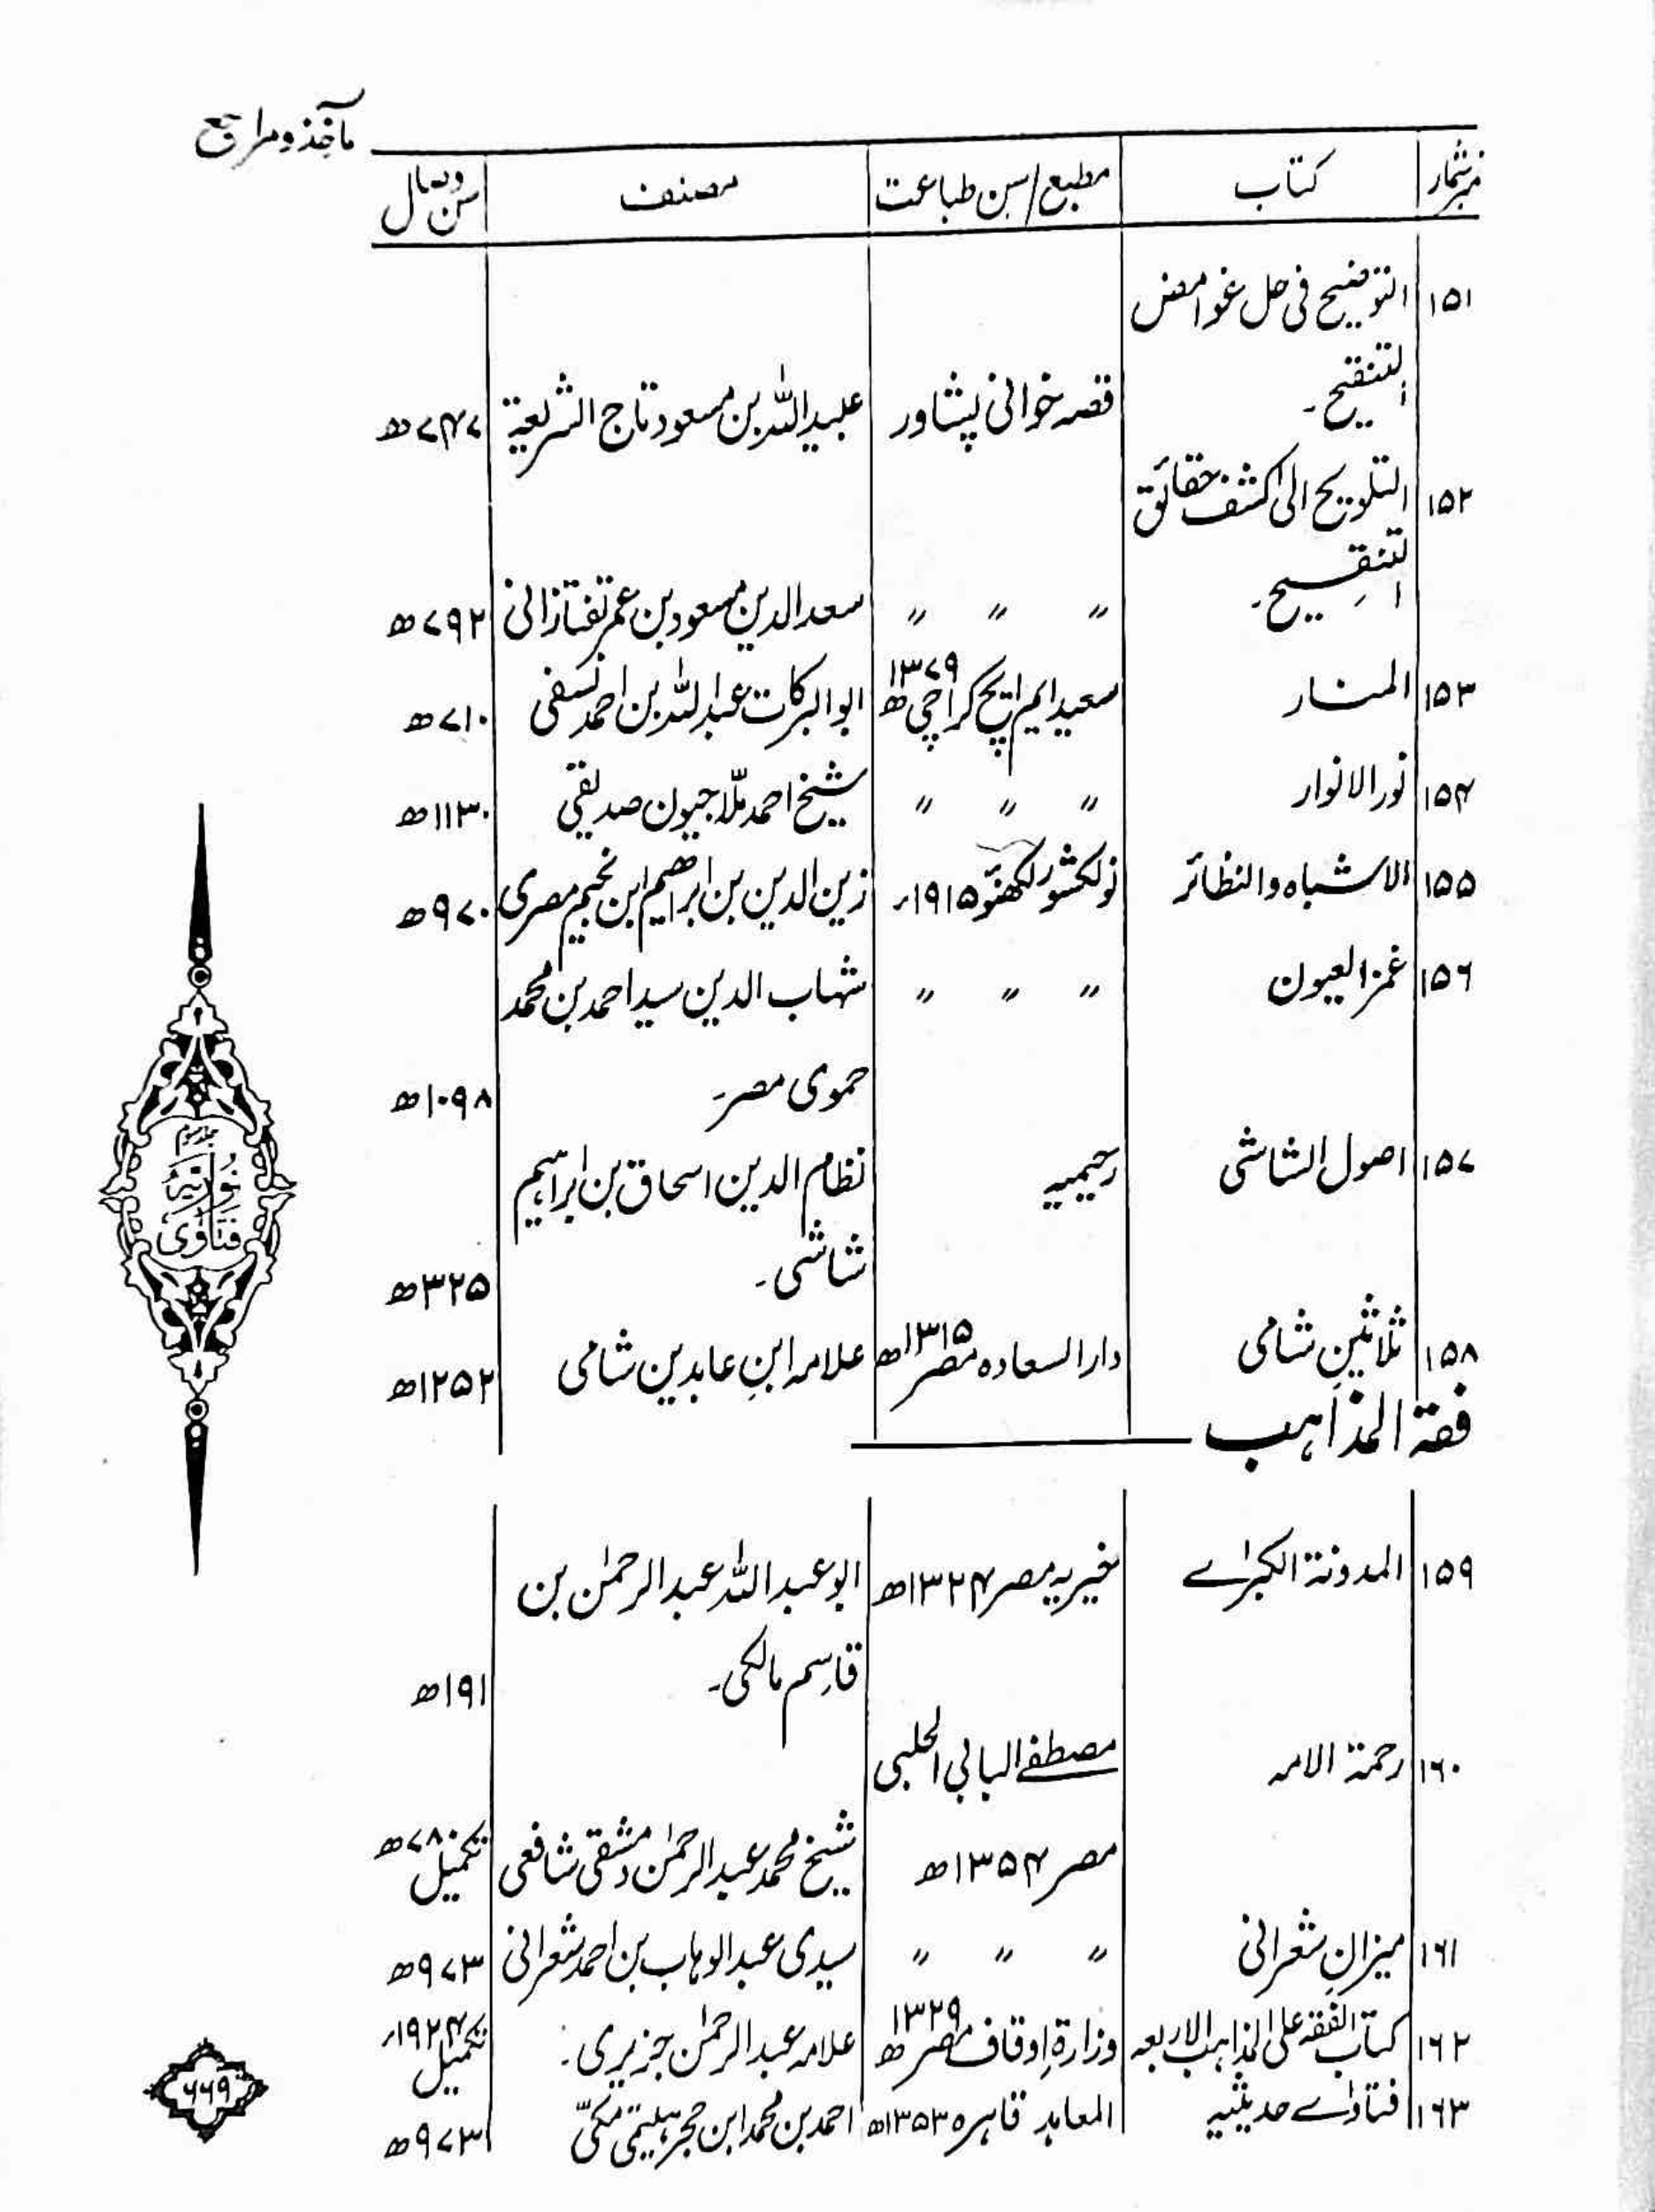 ماٰخذ و مراجع
نمبر شمار کتاب مطبع/سن طباعت مصنف سن وصال
۱۵۱ التوضیح فی حل غوامض
التنقیح۔ قصہ خوانی پشاور عبیداللہ بن مسعود تاج الشریعۃ ۷۴۷ھ
۱۵۲ التلویح الیٰ کشف حقائق
التنقیح۔ 〃 〃 〃 سعد الدین مسعود بن عمر تفتازانی ۷۹۲ھ
۱۵۳ المنار سعید ایم ایچ کراچی ۱۳۷۹ھ ابوالبرکات عبداللہ بن احمد نسفی ۷۱۰ھ
۱۵۴ نورالانوار 〃 〃 〃 شیخ احمد ملّا جیون صدیقی ۱۱۳۰ھ
۱۵۵ الاشباہ والنظائر نولکشور لکھنؤ ۱۹۱۵ء زین الدین بن ابراھیم ابن نجیم مصری ۹۷۰ھ
۱۵۶ غمز العیون 〃 〃 〃 شہاب الدین سید احمد بن محمد
حموی مصر۔ ۱۰۹۸ھ
۱۵۷ اصول الشاشی رحیمیہ نظام الدین اسحاق بن ابراہیم
شاشی۔ ۳۲۵ھ
۱۵۸ ثلاثینِ شامی دارالسعادہ مصر ۱۳۱۵ھ علامہ ابنِ عابدین شامی ۱۲۵۲ھ
فقۃ المذاہب
۱۵۹ المدونۃ الکبرٰے خیریہ مصر ۱۳۲۴ھ ابوعبداللہ عبدالرحمٰن بن
قاسم مالکی۔ ۱۹۱ھ
۱۶۰ رحمۃ الامہ مصطفےٰ البابی الحلبی
مصر ۱۳۵۴ھ شیخ محمد عبدالرحمٰن دمشقی شافعی تکمیل ۷۸۰ھ
۱۶۱ میزانِ شعرانی 〃 〃 〃 سیدی عبدالوہاب بن احمد شعرانی ۹۷۳ھ
۱۶۲ کتاب الفقہ علی المذاہب الاربعہ وزارۃ اوقاف مصر ۱۳۲۹ھ علامہ عبدالرحمٰن جزیری۔ تکمیل ۱۹۲۴ء
۱۶۳ فتاوٰے حدیثیہ المعاہد قاہرہ ۱۳۵۳ھ احمد بن محمد ابن حجر ہیتمی مکیّ ۹۷۳ھ
نُوریّہ
فتاویٰ
۶۶۹